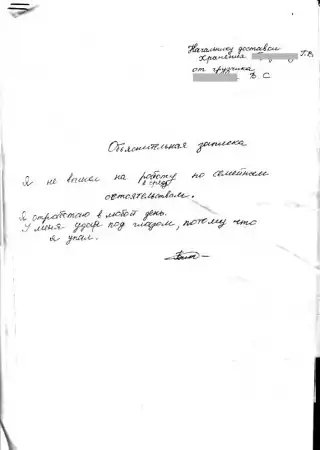 Начальнику доставки
хранения Г.В
от грузчика
В.С
Объяснительная записка
Я не вышел на работу по семейным
в среду
обстоятельствам.
Я отработаю в любой день.
У меня удар под глазом, потому что
я упал.